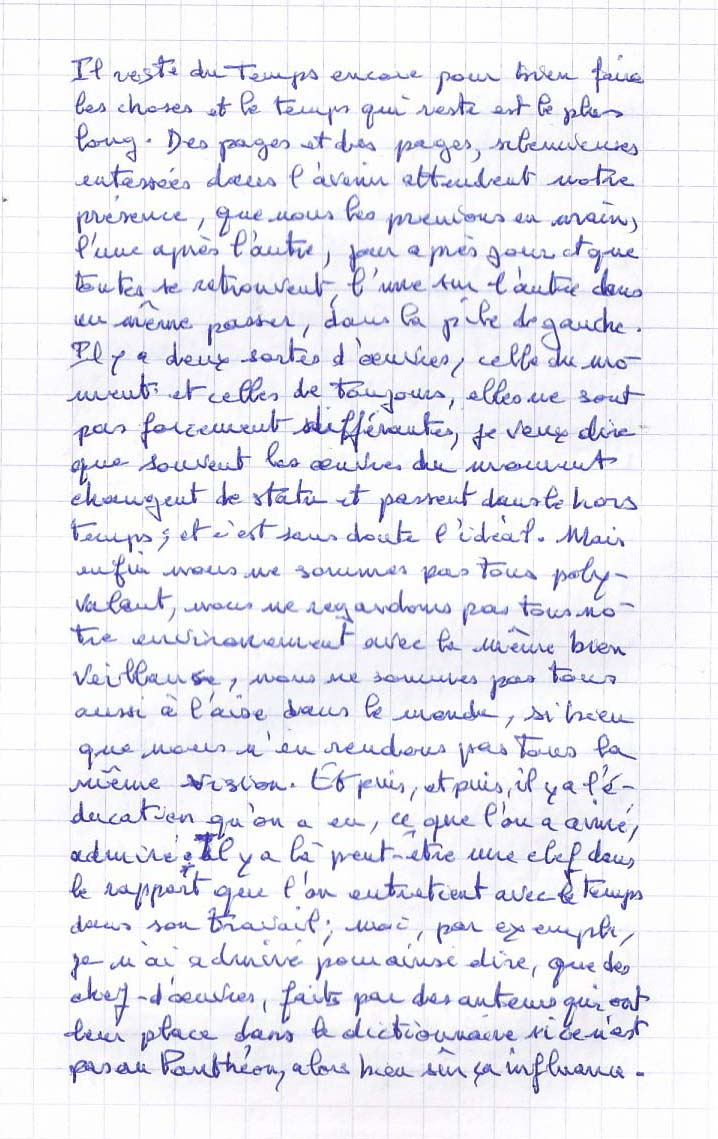 Il reste du temps encore pour bien faire
les choses et le temps qui reste est le plus
long. Des pages et des pages, silencieuses
entassées dans l'avenir attendent notre
présence, que nous les prenions en main,
l'une après l'autre, jour après jour et que
toutes se retrouvent, l'une sur l'autre dans
un même passer, dans la pile de gauche.
Il y a deux sortes d'oeuvres, celle du mo-
ment et celles de toujours, elles ne sont
pas forcement différentes, je veux dire
que souvent les oeuvres du moment
changent de statu et passent dans le hors
temps ; et c'est sans doute l'idéal. Mais
enfin nous ne sommes pas tous poly-
valant, nous ne regardons pas tous no-
tre environnement avec la même bien
veillance, nous ne sommes pas tous
aussi à l'aise dans le monde, si bien
que nous n'en rendons pas tous la
même vision. Et puis, et puis, il y a l'é-
ducation qu'on a eu, ce que l'on a aimé,
admiré. Il y a là peut-être une clef dans
le rapport que l'on entretient avec le temps
dans son travail ; moi, par exemple,
je n'ai admiré pour ainsi dire, que des
chef-d'oeuvres, faits par des auteurs qui ont
leur place dans le dictionnaire si ce n'est
pas au Panthéon, alors bien sûr ça influence.